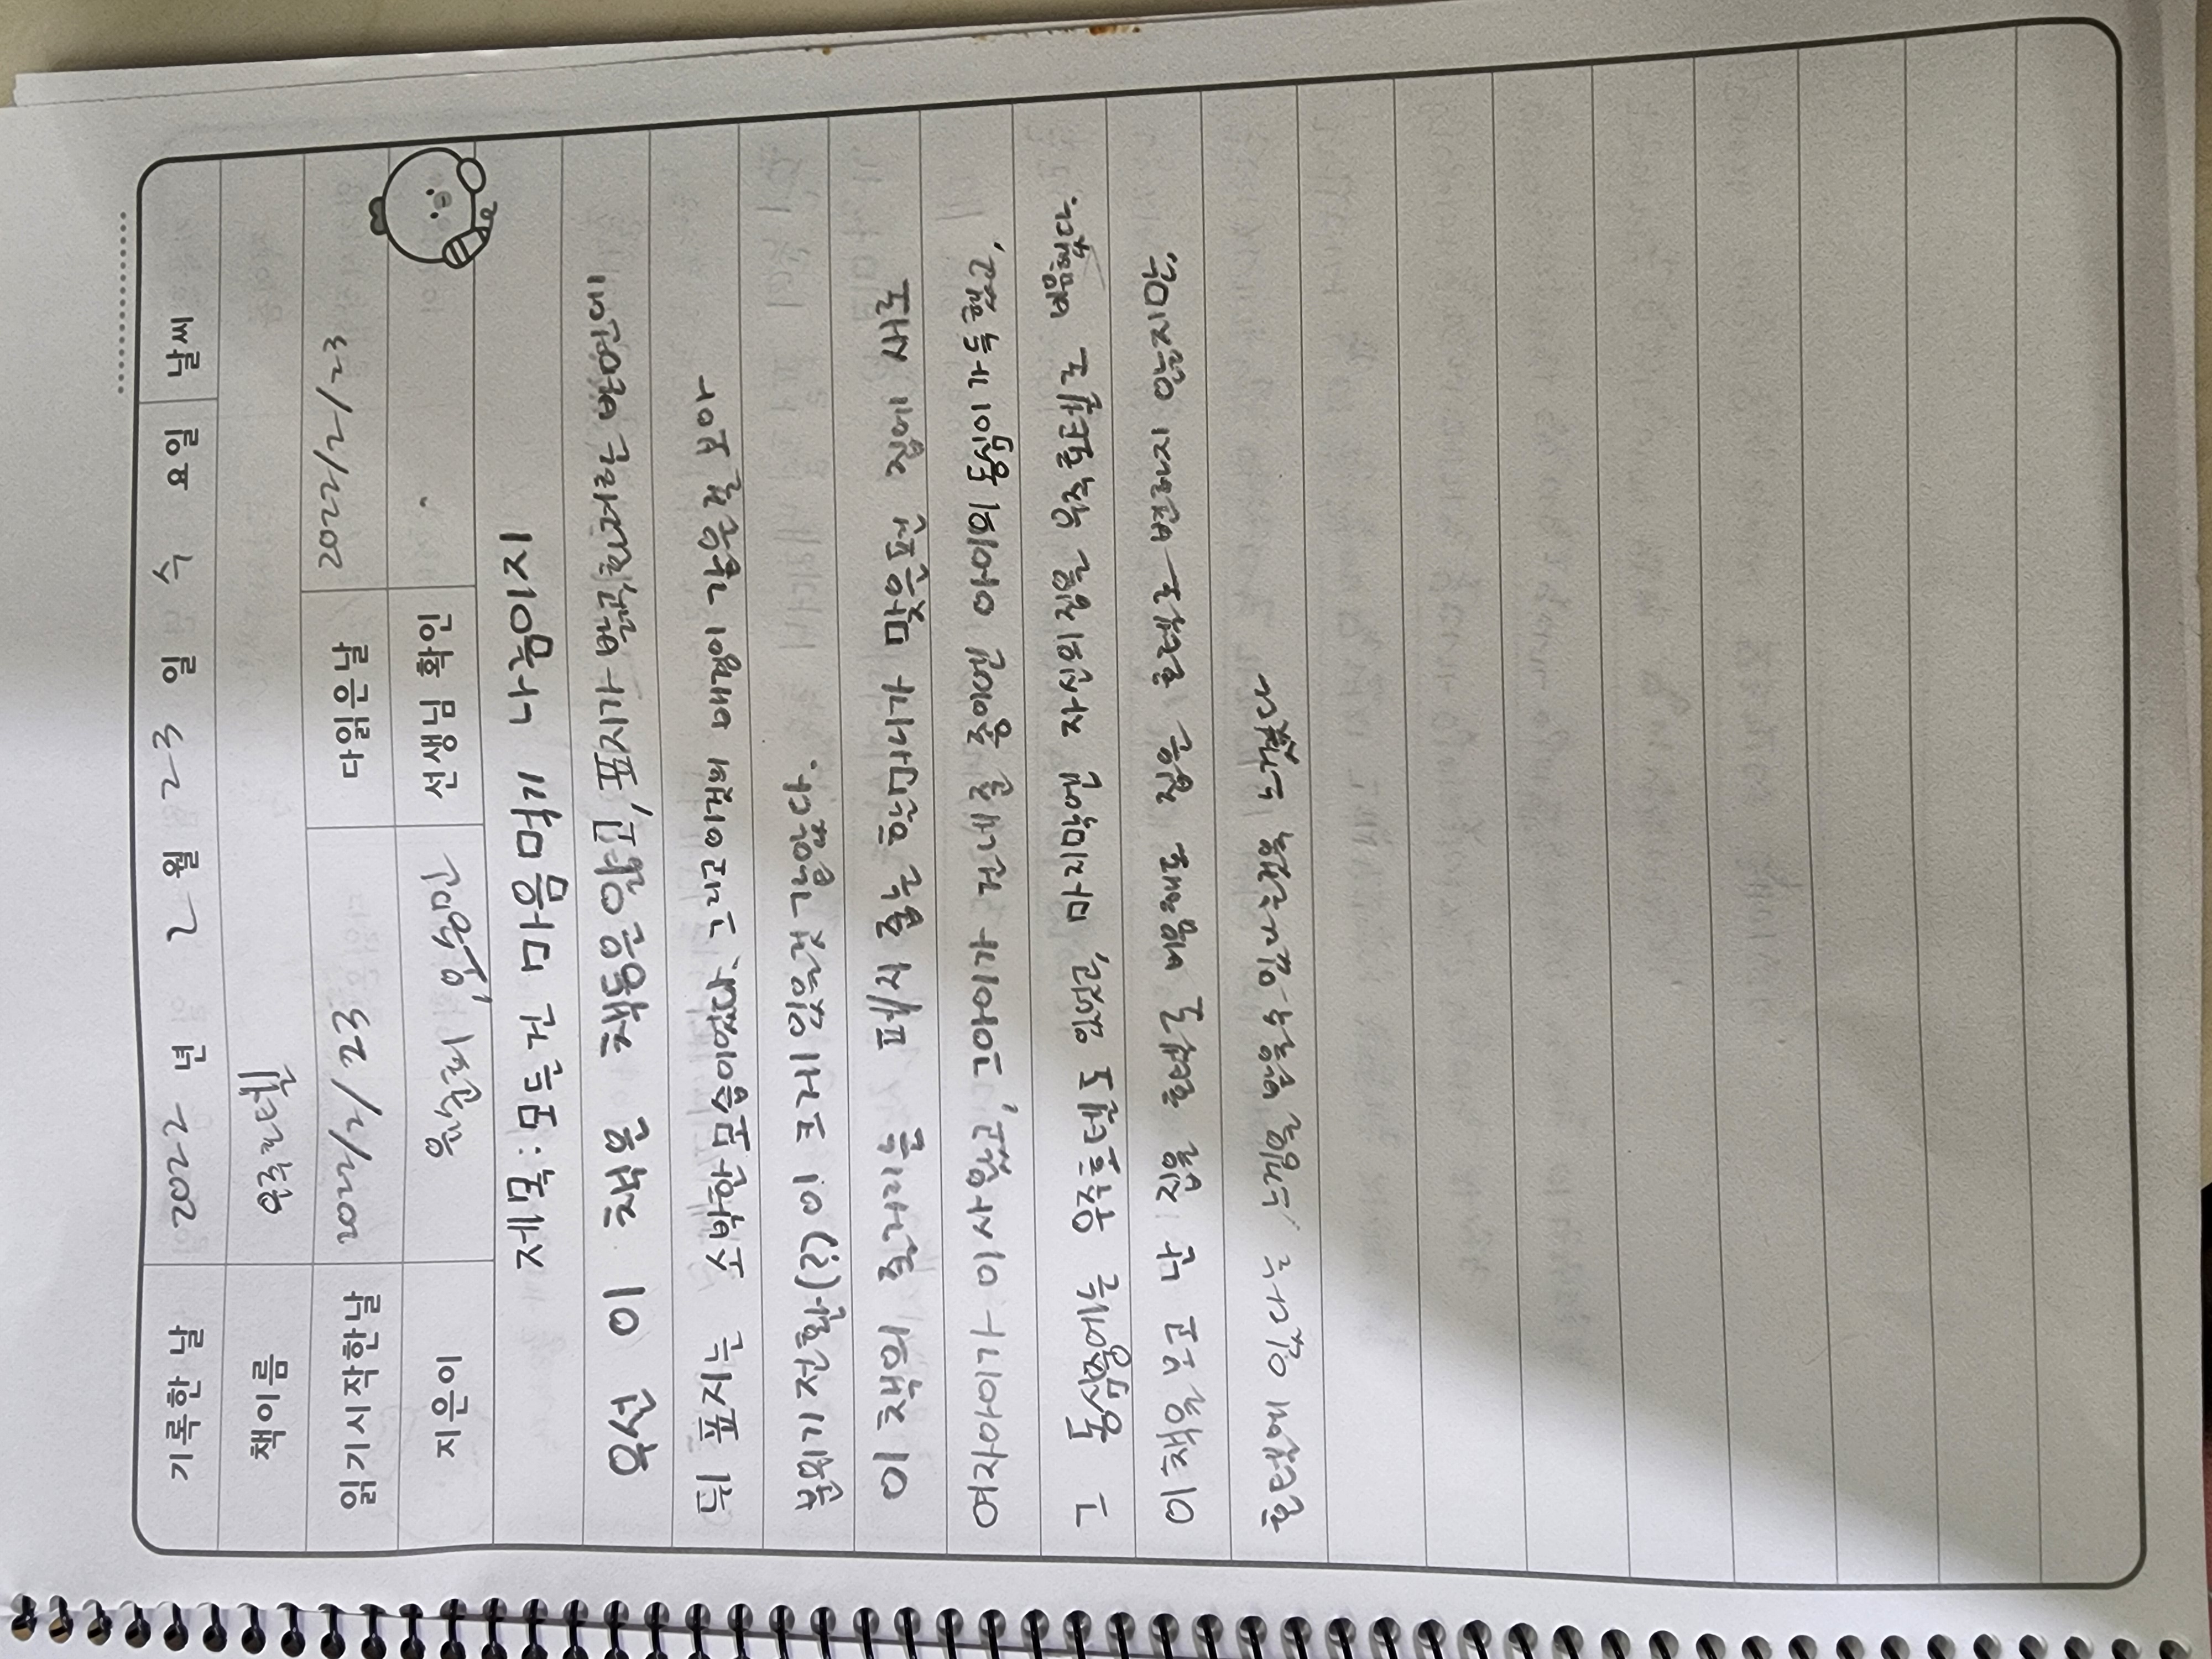 기록한 날 2022 년 2 월 23 일 수 요일 날씨
책이름 우주호텔
읽기시작한날 2022/2/23 다읽은날 2022/2/23
지은이 유순희, 오승민 선생님 확인
제목: 모든건 마음먹기 나름이지
우선 이 책은 책등은 얇고, 표지가 밝고, 화려한 반면에
뒤 표지는 소박한 모습이었다. 그리고 이것의 배경이 같은걸 보아
분위기 전환(?)이 크게 있을것 같았다.
이 책의 줄거리는 페지 줍는 할머니가 맞은편 집에 새로
여자아이가 이사 왔고, 그아이가 건네준 종이엔 아이의 동심이 가득했고,
그 동심중에는 우주호텔도 있었고, 마지막엔 자신의 집을 우주호텔로 비유했다.
이책을 보고 난 집을 호텔로 비유해도 집은 호텔로 변하지 않지만,
호텔에 있다는 느낌을 받을수 있다는것을 느꼈다